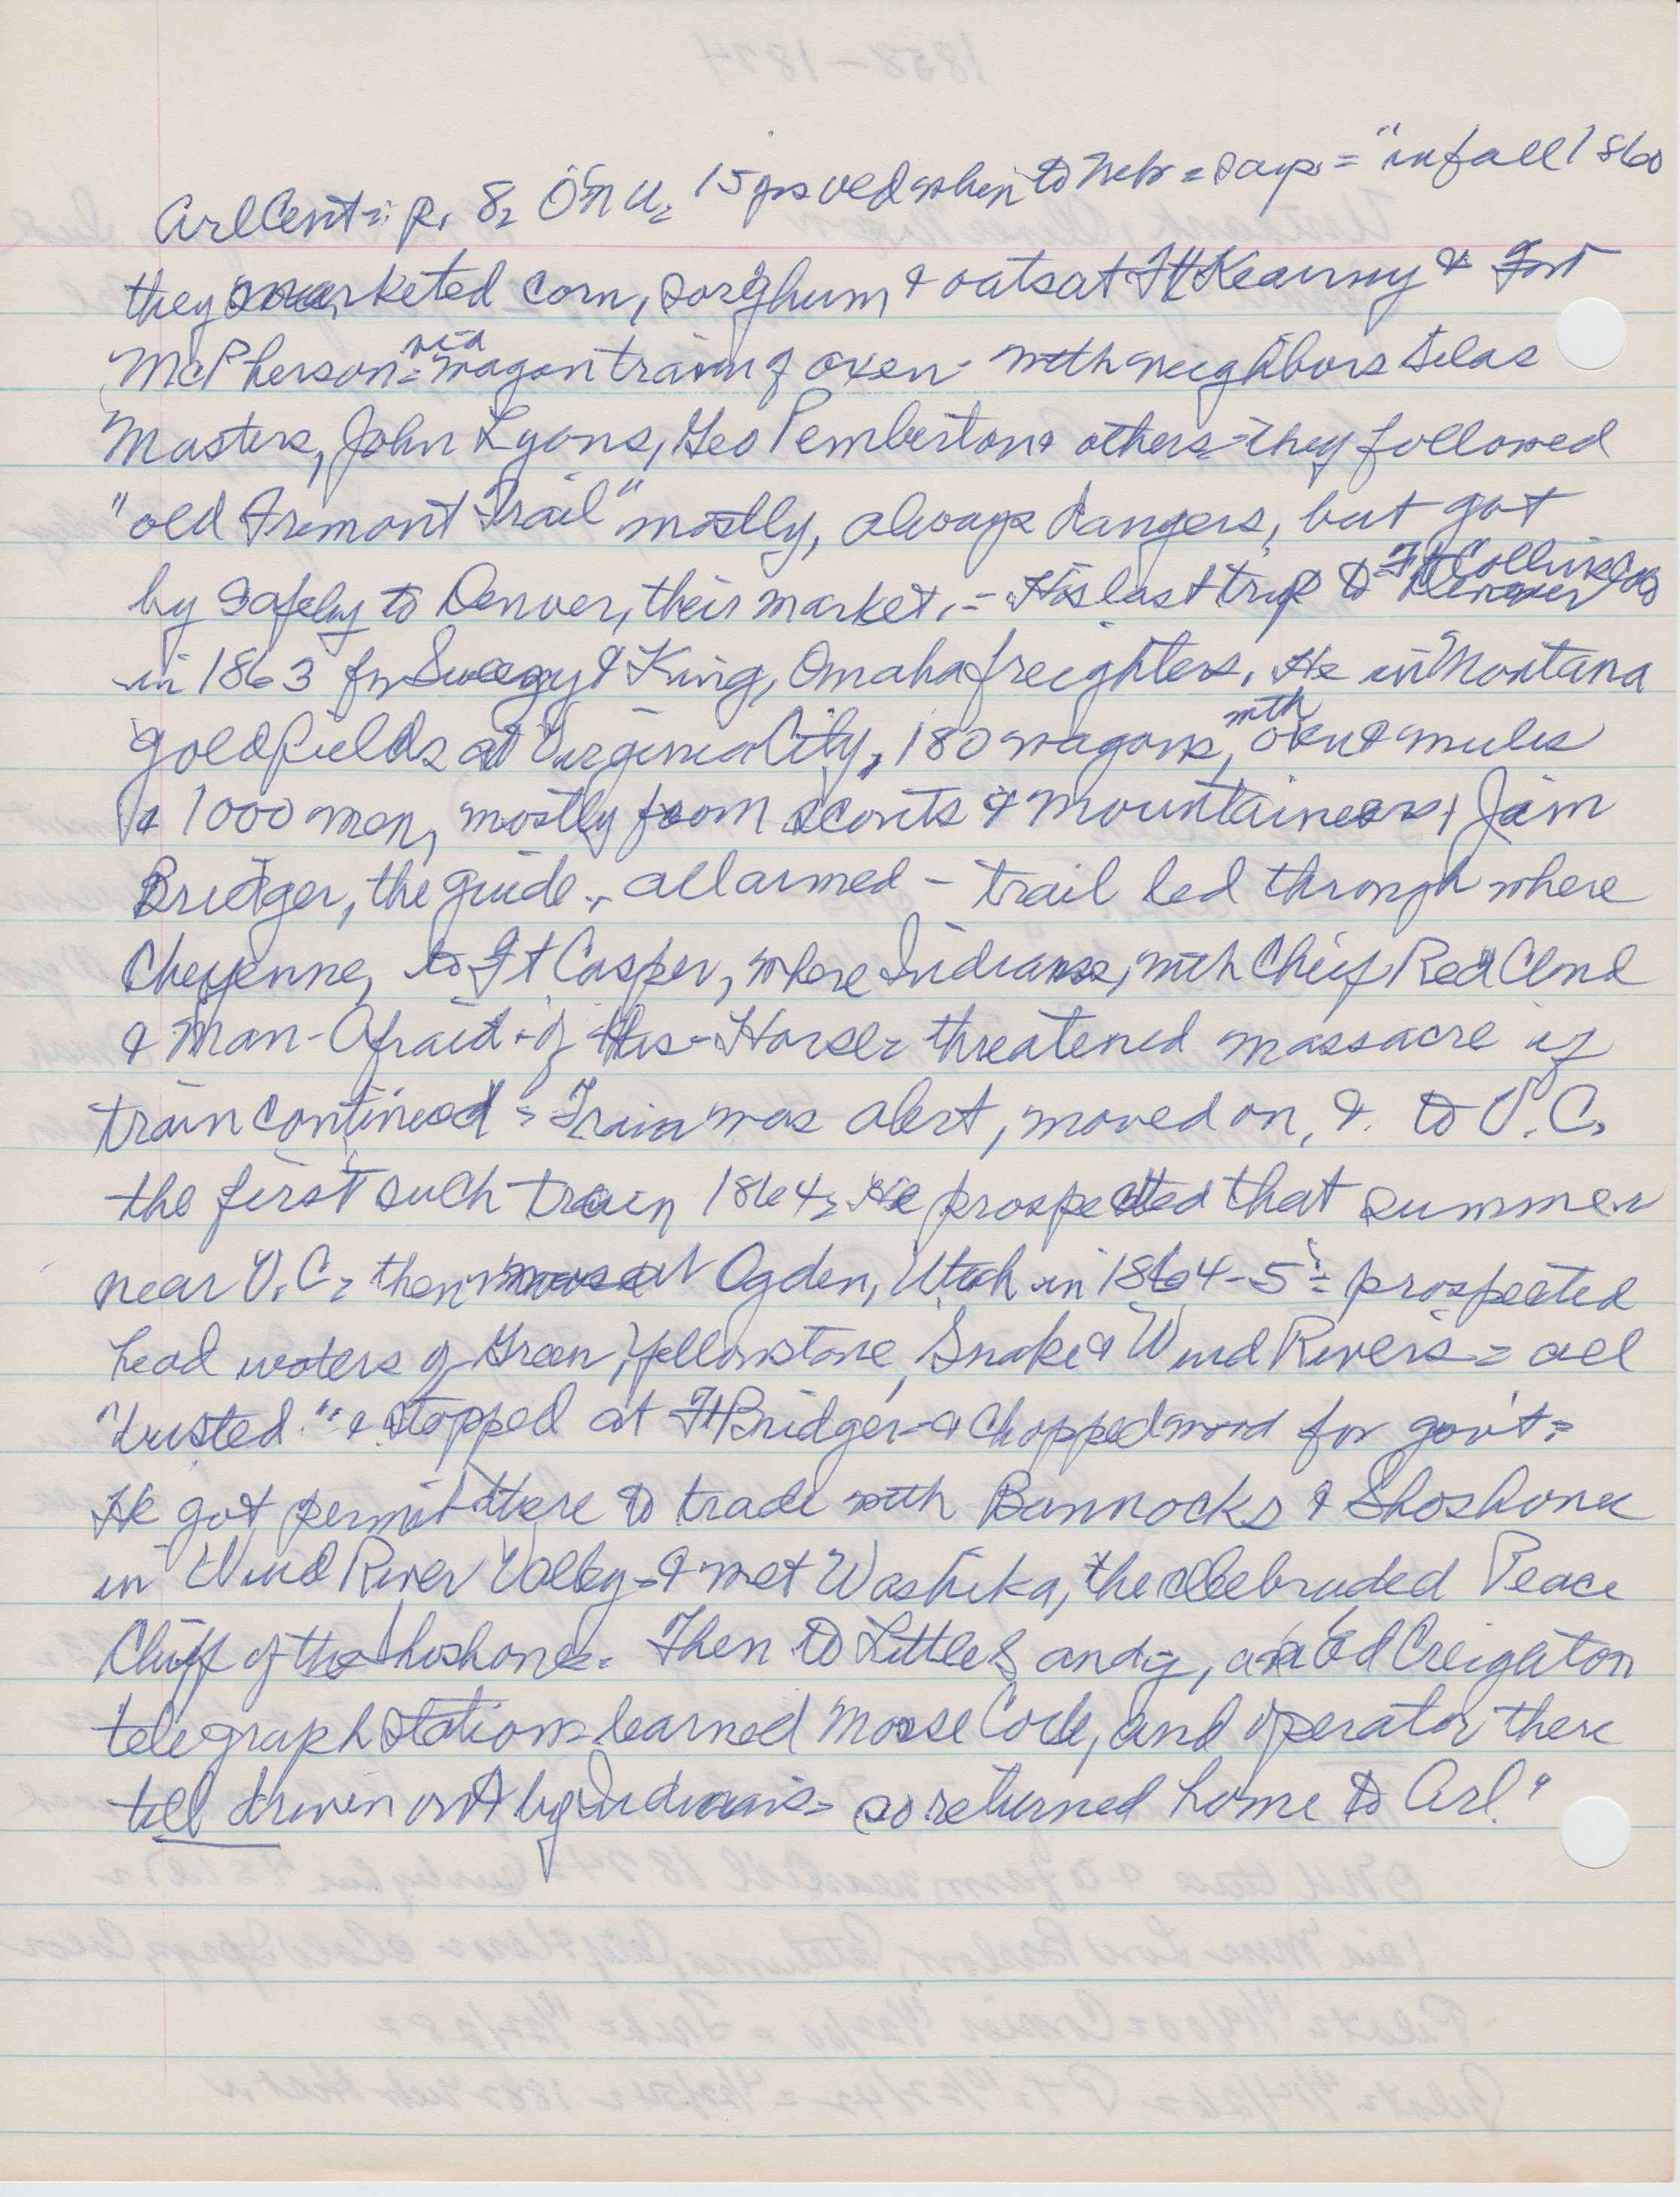 Arl Cent = p. 8, O.N.U. 15 yrs old when to Nebr = says = "in fall 1860
they marketed corn, sorghum & oats at Ft Kearny & Fort
McPherson = via wagon train of oxen - with neighbors Silas
Masters, John Lyons, Geo Pemberton & others = they followed
"old Fremont Trail" mostly, always dangers, but got
by safely to Denver, their market. = His last trip to Ft Collins Colo
in 1863 for Sweezy & King, Omaha freighters. He in Montana
goldfields at Virginia City, 180 wagons, with oxen & mules
& 1000 men, mostly from scouts & mountaineers, Jim
Bridger, the guide - all armed - trail led through where
Cheyenne, to Ft Casper, where Indians, with Chief Red Cloud
& Man-Afraid-of-His-Horse = threatened massacre if
train continued = Train was alert, moved on, & to V.C.
the first such train 1864 = He prospected that summer
near V.C. = then at Ogden, Utah in 1864-5 = prospected
head waters of Green, Yellowstone, Snake & Wind Rivers = all
"busted." & stopped at Ft Bridger - & chopped wood for gov't =
He got permit there to trade with Bannocks & Shoshone
in Wind River Valley = & met Washika, the celebraded Peace
Chiff of the Shoshone. Then to Little Sandy, an Ed Creighton
telegraph station = learned Morse Code, and operator there
till driven out by Indians = so returned home to Arl."